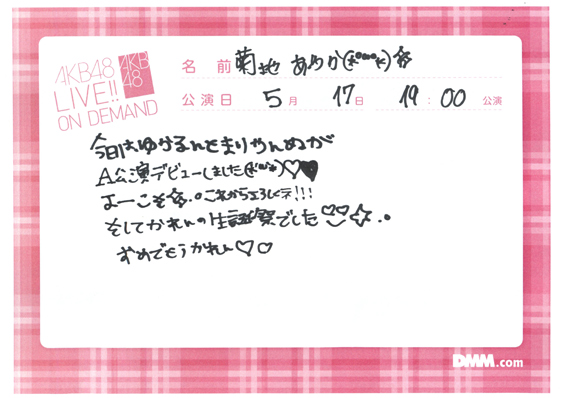 AKB48
LIVE!!
ON DEMAND
AKB
48
名前 菊地 あやか(*°ω°*)☆
公演日 5月 17日 19:00 公演
今日はゆかるんとまりやんぬが
A公演デビューしました(*°ω°*)♡♥
よーこそ☆.。これからよろしくデ!!!
そしてかれんの生誕祭でした♡♡☆.。
おめでもうかれん♡♡
DMM.com